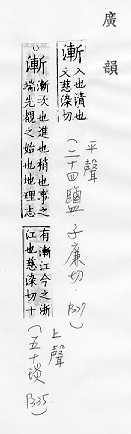 廣韻
漸 入也漬也
又慈染切
平聲
(二十四鹽 子廉切
漸 漸次也進也稍也事之
端先覩之始也地理志
有漸江今之浙
江也慈染切十
上聲
(五十琰